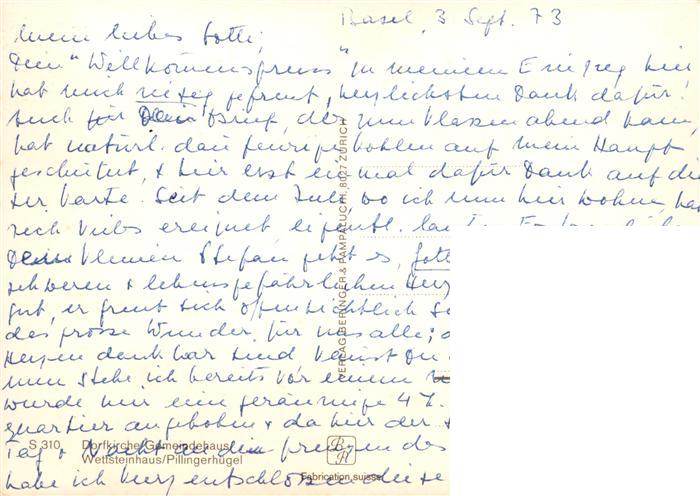 Basel, 3 Sept. 73
Mein liebes Gotti,
Dein "Willkommensgruss" zu meinem Einzug hier
hat mich riesig gefreut, herzlichsten Dank dafür!
Auch für Dein Brief, der zum Klassenabend kam,
hat natürl. dann feurige Kohlen auf mein Haupt
geschüttet, & hier erst einmal dafür Dank auf die-
ser Karte. Seit dem Juli, wo ich nun hier wohne, hat
sich vieles ereignet eigentl.
Dem kleinen Stefan geht es, Gott
schweren & lebensgefährlichen Herz
gut, er freut sich offensichtlich
das grosse Wunder für uns alle;
Herzen dankbar sind kannst Du
nun stehe ich bereits vor einem
wurde mir eine geräumige 4 Z.
quartier angeboten & da hier der
Tag & Nacht an den
habe ich kurz entschlossen diese
S 310 Dorfkirche/Gemeindehaus
Wettsteinhaus/Pillingerhügel
VERLAG BERINGER & PAMPALUCHI, 8027 ZÜRICH
B
A
Fabrication suisse